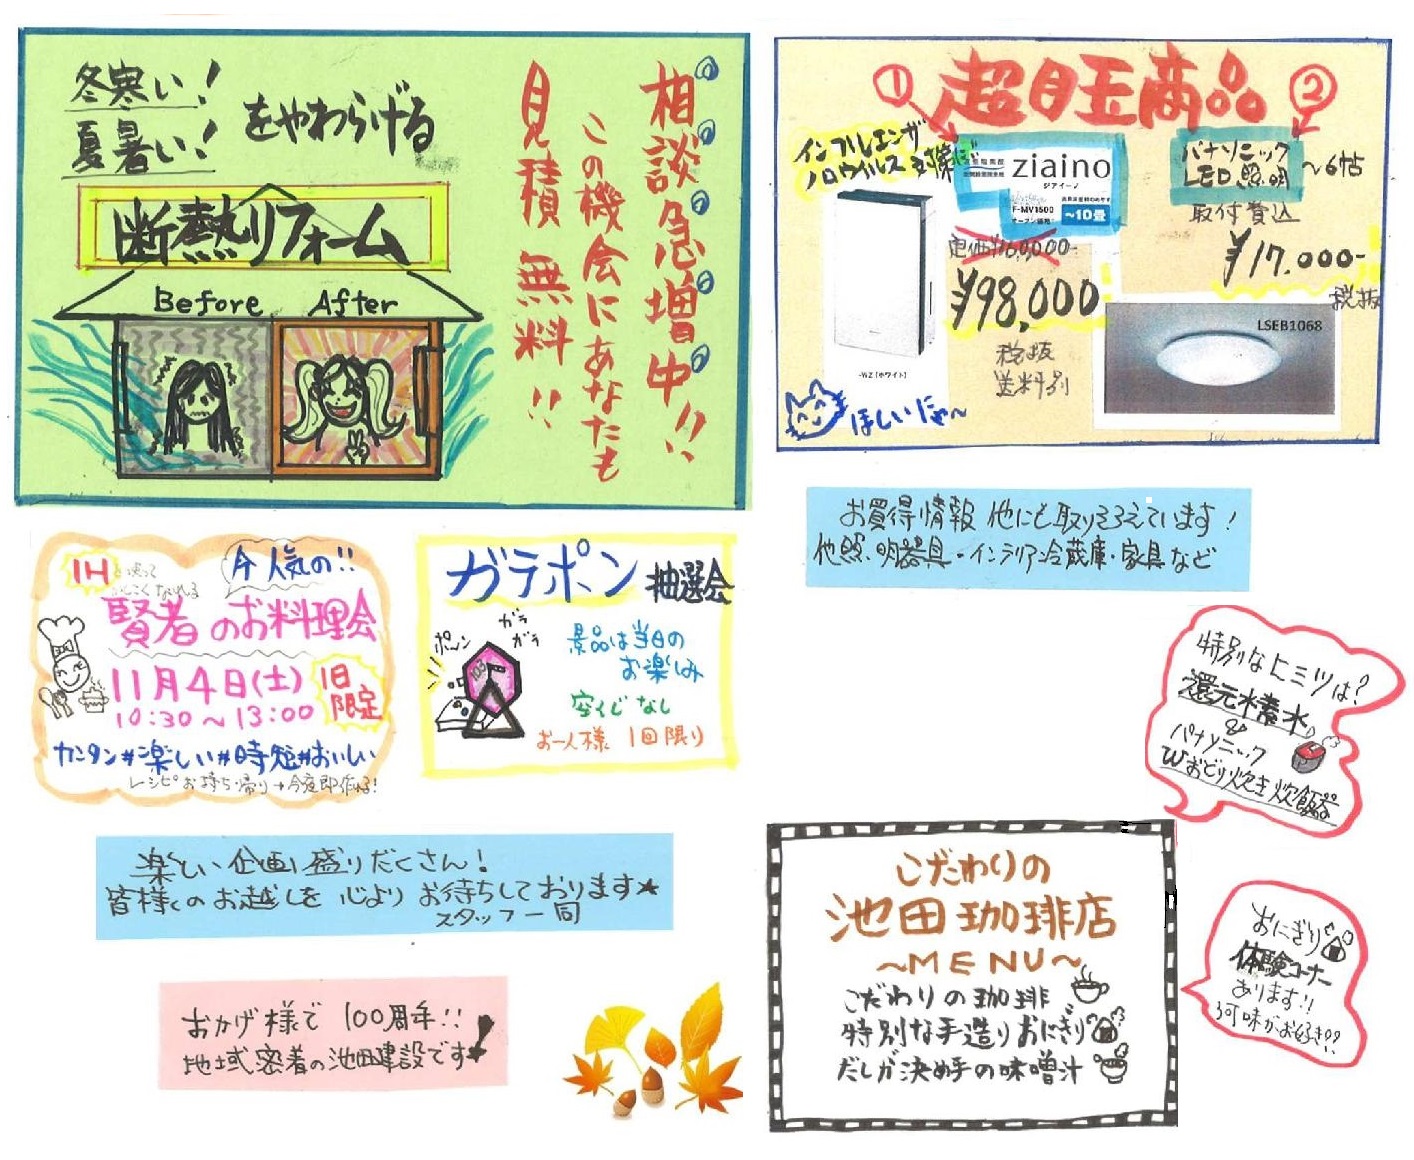 冬寒い!
夏暑い!
をやわらげる
断熱リフォーム
Before After
相談急増中!!
この機会にあなたも
見積無料!!
超目玉商品
①
②
インフルエンザ
ノロウイルス対策に!
ziaino
ジアイーノ
F-MV1500
~10畳
定価¥160,000-
¥98,000
税抜
送料別
-WZ(ホワイト)
ほしいにゃ~
パナソニック
LED照明
~6帖
取付費込
¥17,000-
税抜
LSEB1068
お買得情報 他にも取りそろえています!
他照明器具・インテリア・冷蔵庫・家具など
今人気の!!
IHを使って
かしこくなれる
賢者のお料理会
11月4日(土)
10:30~13:00
1日
限定
カンタン#楽しい#時短#おいしい
レシピお持ち帰り→今夜即作れる!
ガラポン抽選会
ガラ
ガラ
ポーン
103
景品は当日の
お楽しみ
空くじなし
お一人様 1回限り
楽しい企画盛りだくさん!
皆様のお越しを心よりお待ちしております★
スタッフ一同
おかげ様で 100周年!!
地域密着の池田建設です!
特別なヒミツは?
還元水素水
&
パナソニック
Wおどり炊き炊飯器
こだわりの
池田珈琲店
~MENU~
こだわりの珈琲
特別な手造りおにぎり
だしが決め手の味噌汁
おにぎり
体験コーナー
あります!!
何味がお好き??